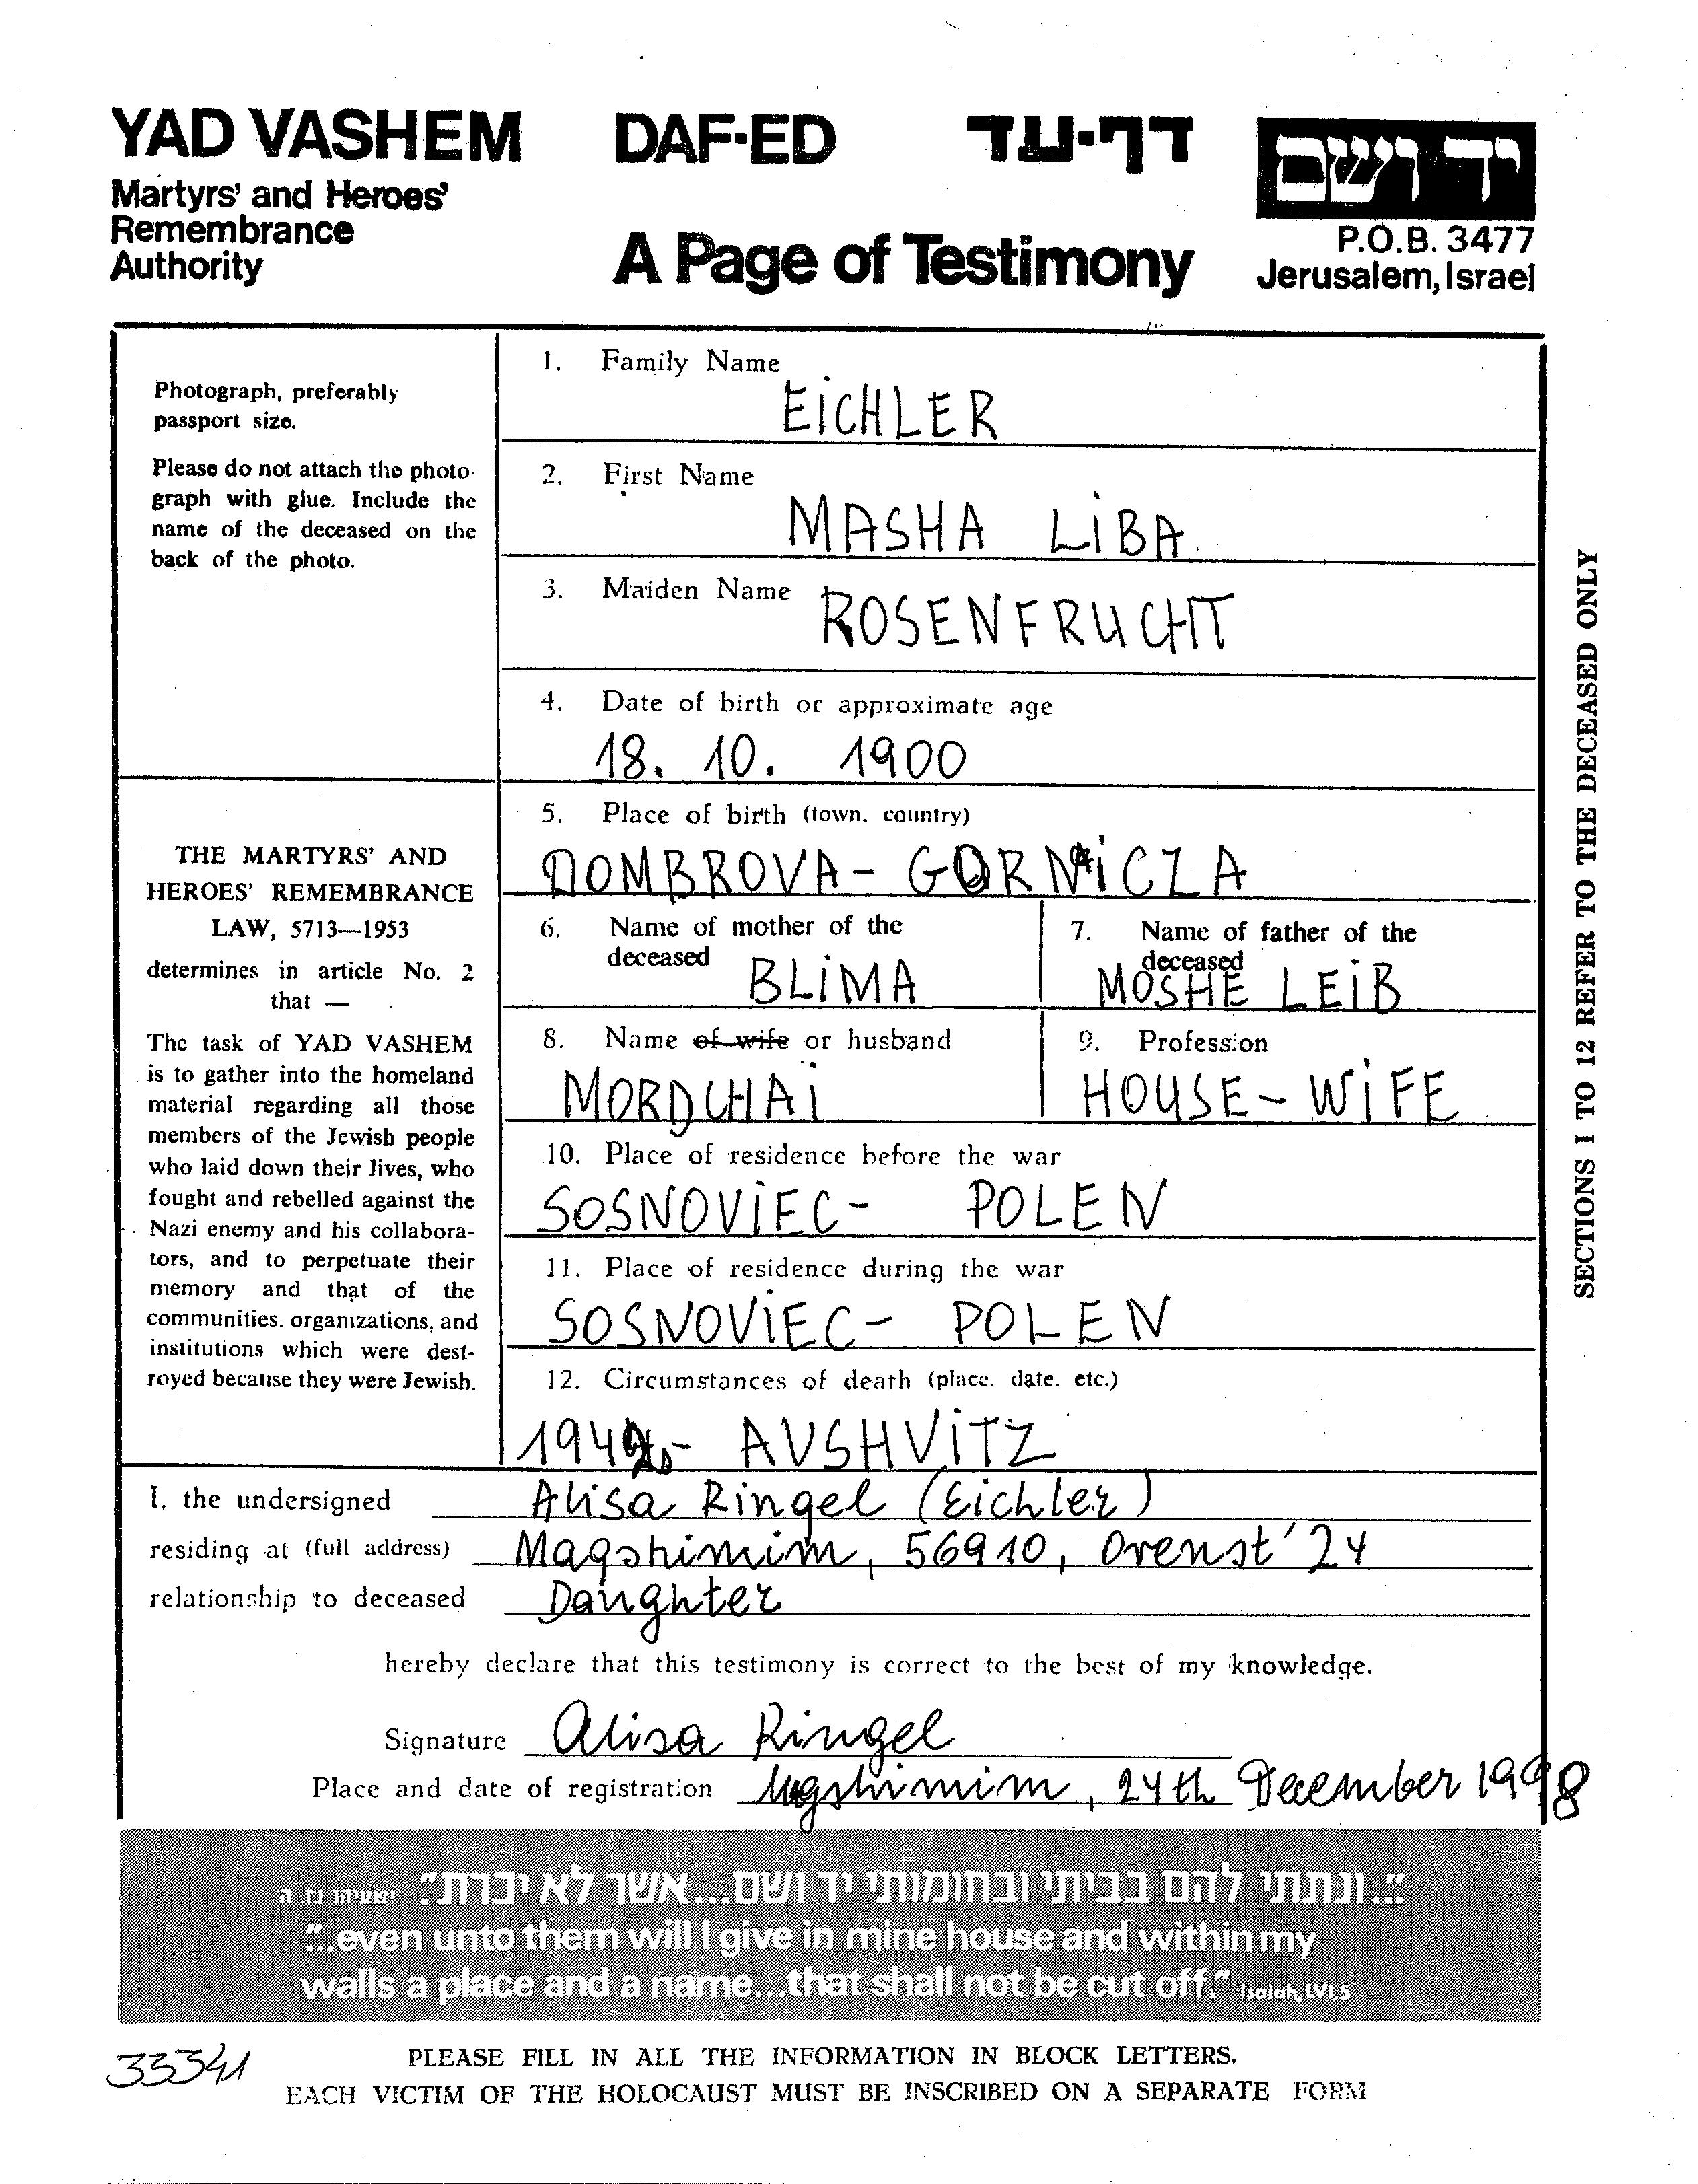 YAD VASHEM DAF-ED דף-עד יד ושם
Martyrs' and Heroes'
Remembrance
Authority
A Page of Testimony
P.O.B. 3477
Jerusalem, Israel
Photograph, preferably
passport size.
Please do not attach the photo-
graph with glue. Include the
name of the deceased on the
back of the photo.
THE MARTYRS' AND
HEROES' REMEMBRANCE
LAW, 5713—1953
determines in article No. 2
that —
The task of YAD VASHEM
is to gather into the homeland
material regarding all those
members of the Jewish people
who laid down their lives, who
fought and rebelled against the
Nazi enemy and his collabora-
tors, and to perpetuate their
memory and that of the
communities, organizations, and
institutions which were dest-
royed because they were Jewish.
1. Family Name
EICHLER
2. First Name
MASHA LIBA
3. Maiden Name
ROSENFRUCHT
4. Date of birth or approximate age
18. 10. 1900
5. Place of birth (town, country)
DOMBROVA - GORNICZA
6. Name of mother of the
deceased
BLIMA
7. Name of father of the
deceased
MOSHE LEIB
8. Name of wife or husband
MORDCHAI
9. Profession
HOUSE-WIFE
10. Place of residence before the war
SOSNOVIEC - POLEN
11. Place of residence during the war
SOSNOVIEC - POLEN
12. Circumstances of death (place, date, etc.)
- AVSHVITZ
I, the undersigned Alisa Ringel (Eichler)
residing at (full address) Magshimim, 56910, Orenst' 24
relationship to deceased Daughter
hereby declare that this testimony is correct to the best of my knowledge.
Signature Alisa Ringel
Place and date of registration Mgshimim, 24th December 1998
SECTIONS 1 TO 12 REFER TO THE DECEASED ONLY
"...ונתתי להם בביתי ובחומותי יד ושם...אשר לא יכרת" ישעיהו נו ה
"...even unto them will I give in mine house and within my
walls a place and a name...that shall not be cut off." Isaiah, LVI,5
33341
PLEASE FILL IN ALL THE INFORMATION IN BLOCK LETTERS.
EACH VICTIM OF THE HOLOCAUST MUST BE INSCRIBED ON A SEPARATE FORM